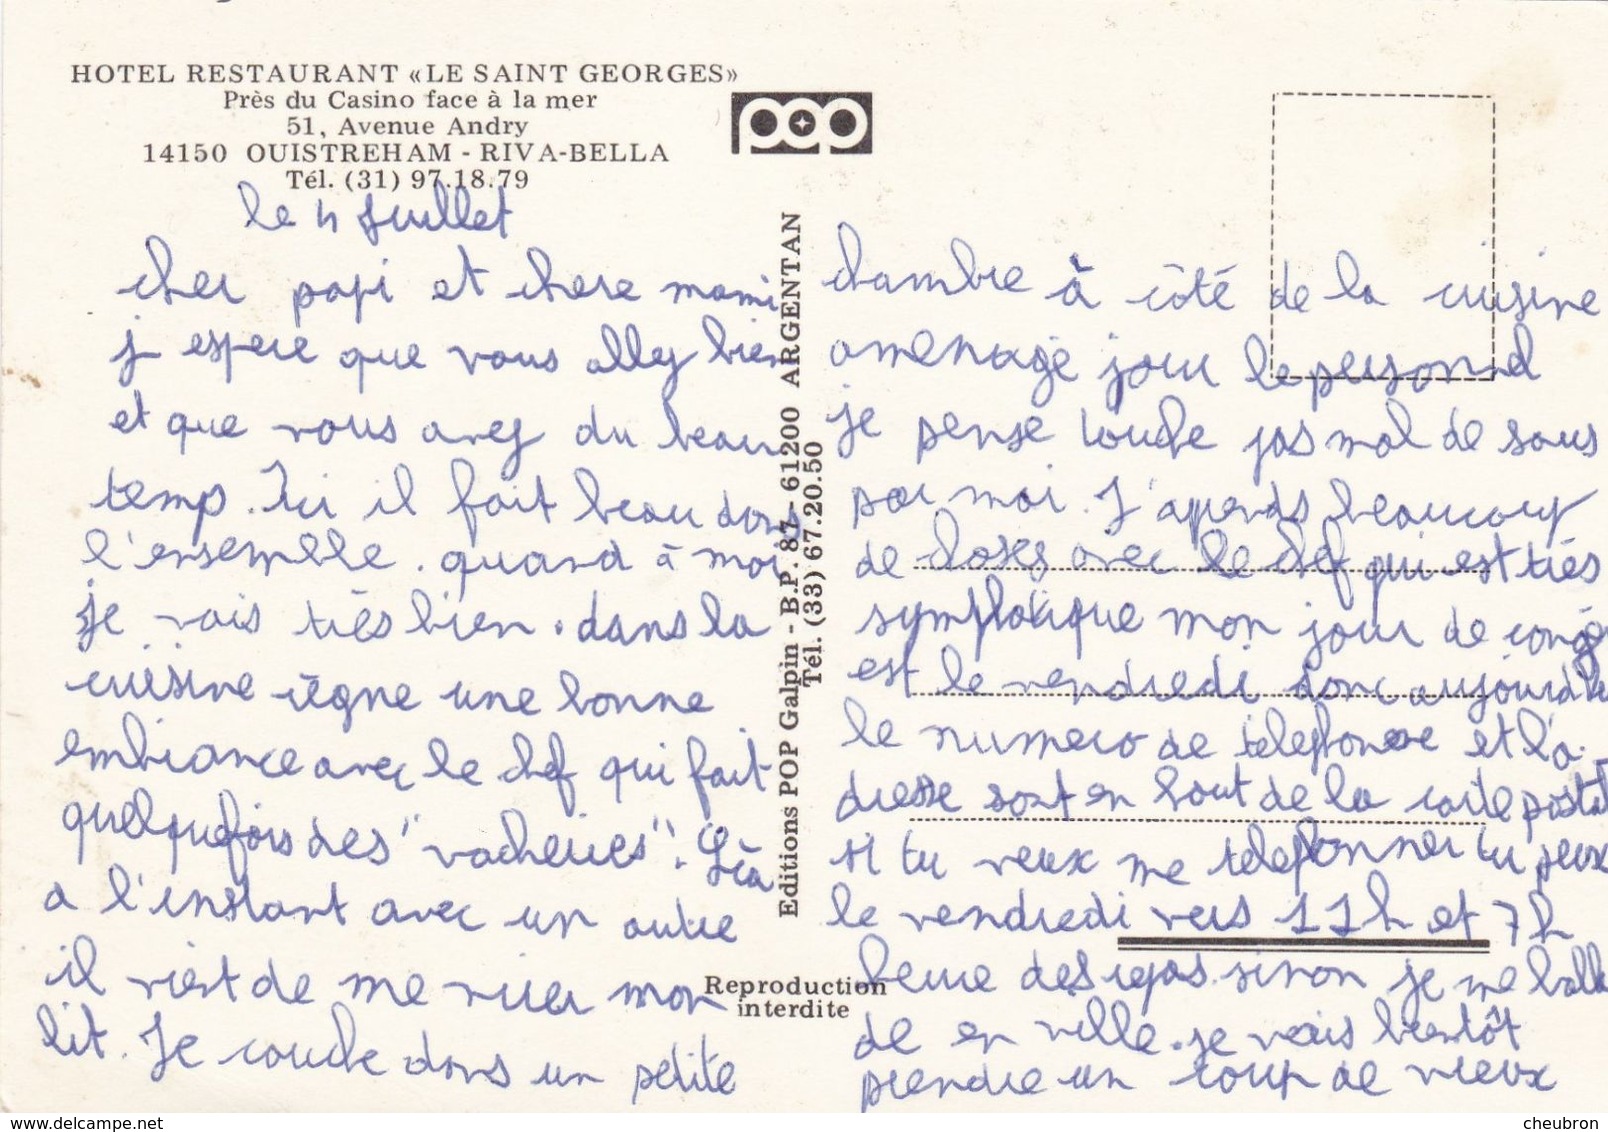 HOTEL RESTAURANT «LE SAINT GEORGES»
Près du Casino face à la mer
51, Avenue Andry
14150 OUISTREHAM - RIVA-BELLA
Tél. (31) 97.18.79
le 4 Juillet
cher papi et chere mami
j espere que vous allez bien
et que vous avez du beau
temp. Ici il fait beau dans
l'ensemble. quand à moi
je vais très bien. dans la
cuisine règne une bonne
embiance avec le chef qui fait
quelquefois des "vacheries".
a l'instant avec un autre
il vient de me vider mon
lit. Je couche dans un petite
pop
Editions POP Galpin - B.P. 87 - 61200 ARGENTAN
Tél. (33) 67.20.50
Reproduction
interdite
chambre à côté de la cuisine
amenagé pour le personnel
je pense touche pas mal de sous
par moi. J'apprends beaucoup
de choses avec le chef qui est très
symphatique mon jour de congé
est le vendredi donc aujourd'hu
le numero de telephone et l'a
dresse sont en haut de la carte postal
si tu veux me telephonner tu peux
le vendredi vers 11h et 7h
heure des repas. sinon je me balla
de en ville. je vais bientôt
prendre un coup de vieux
www.delcampe.net
cheubron